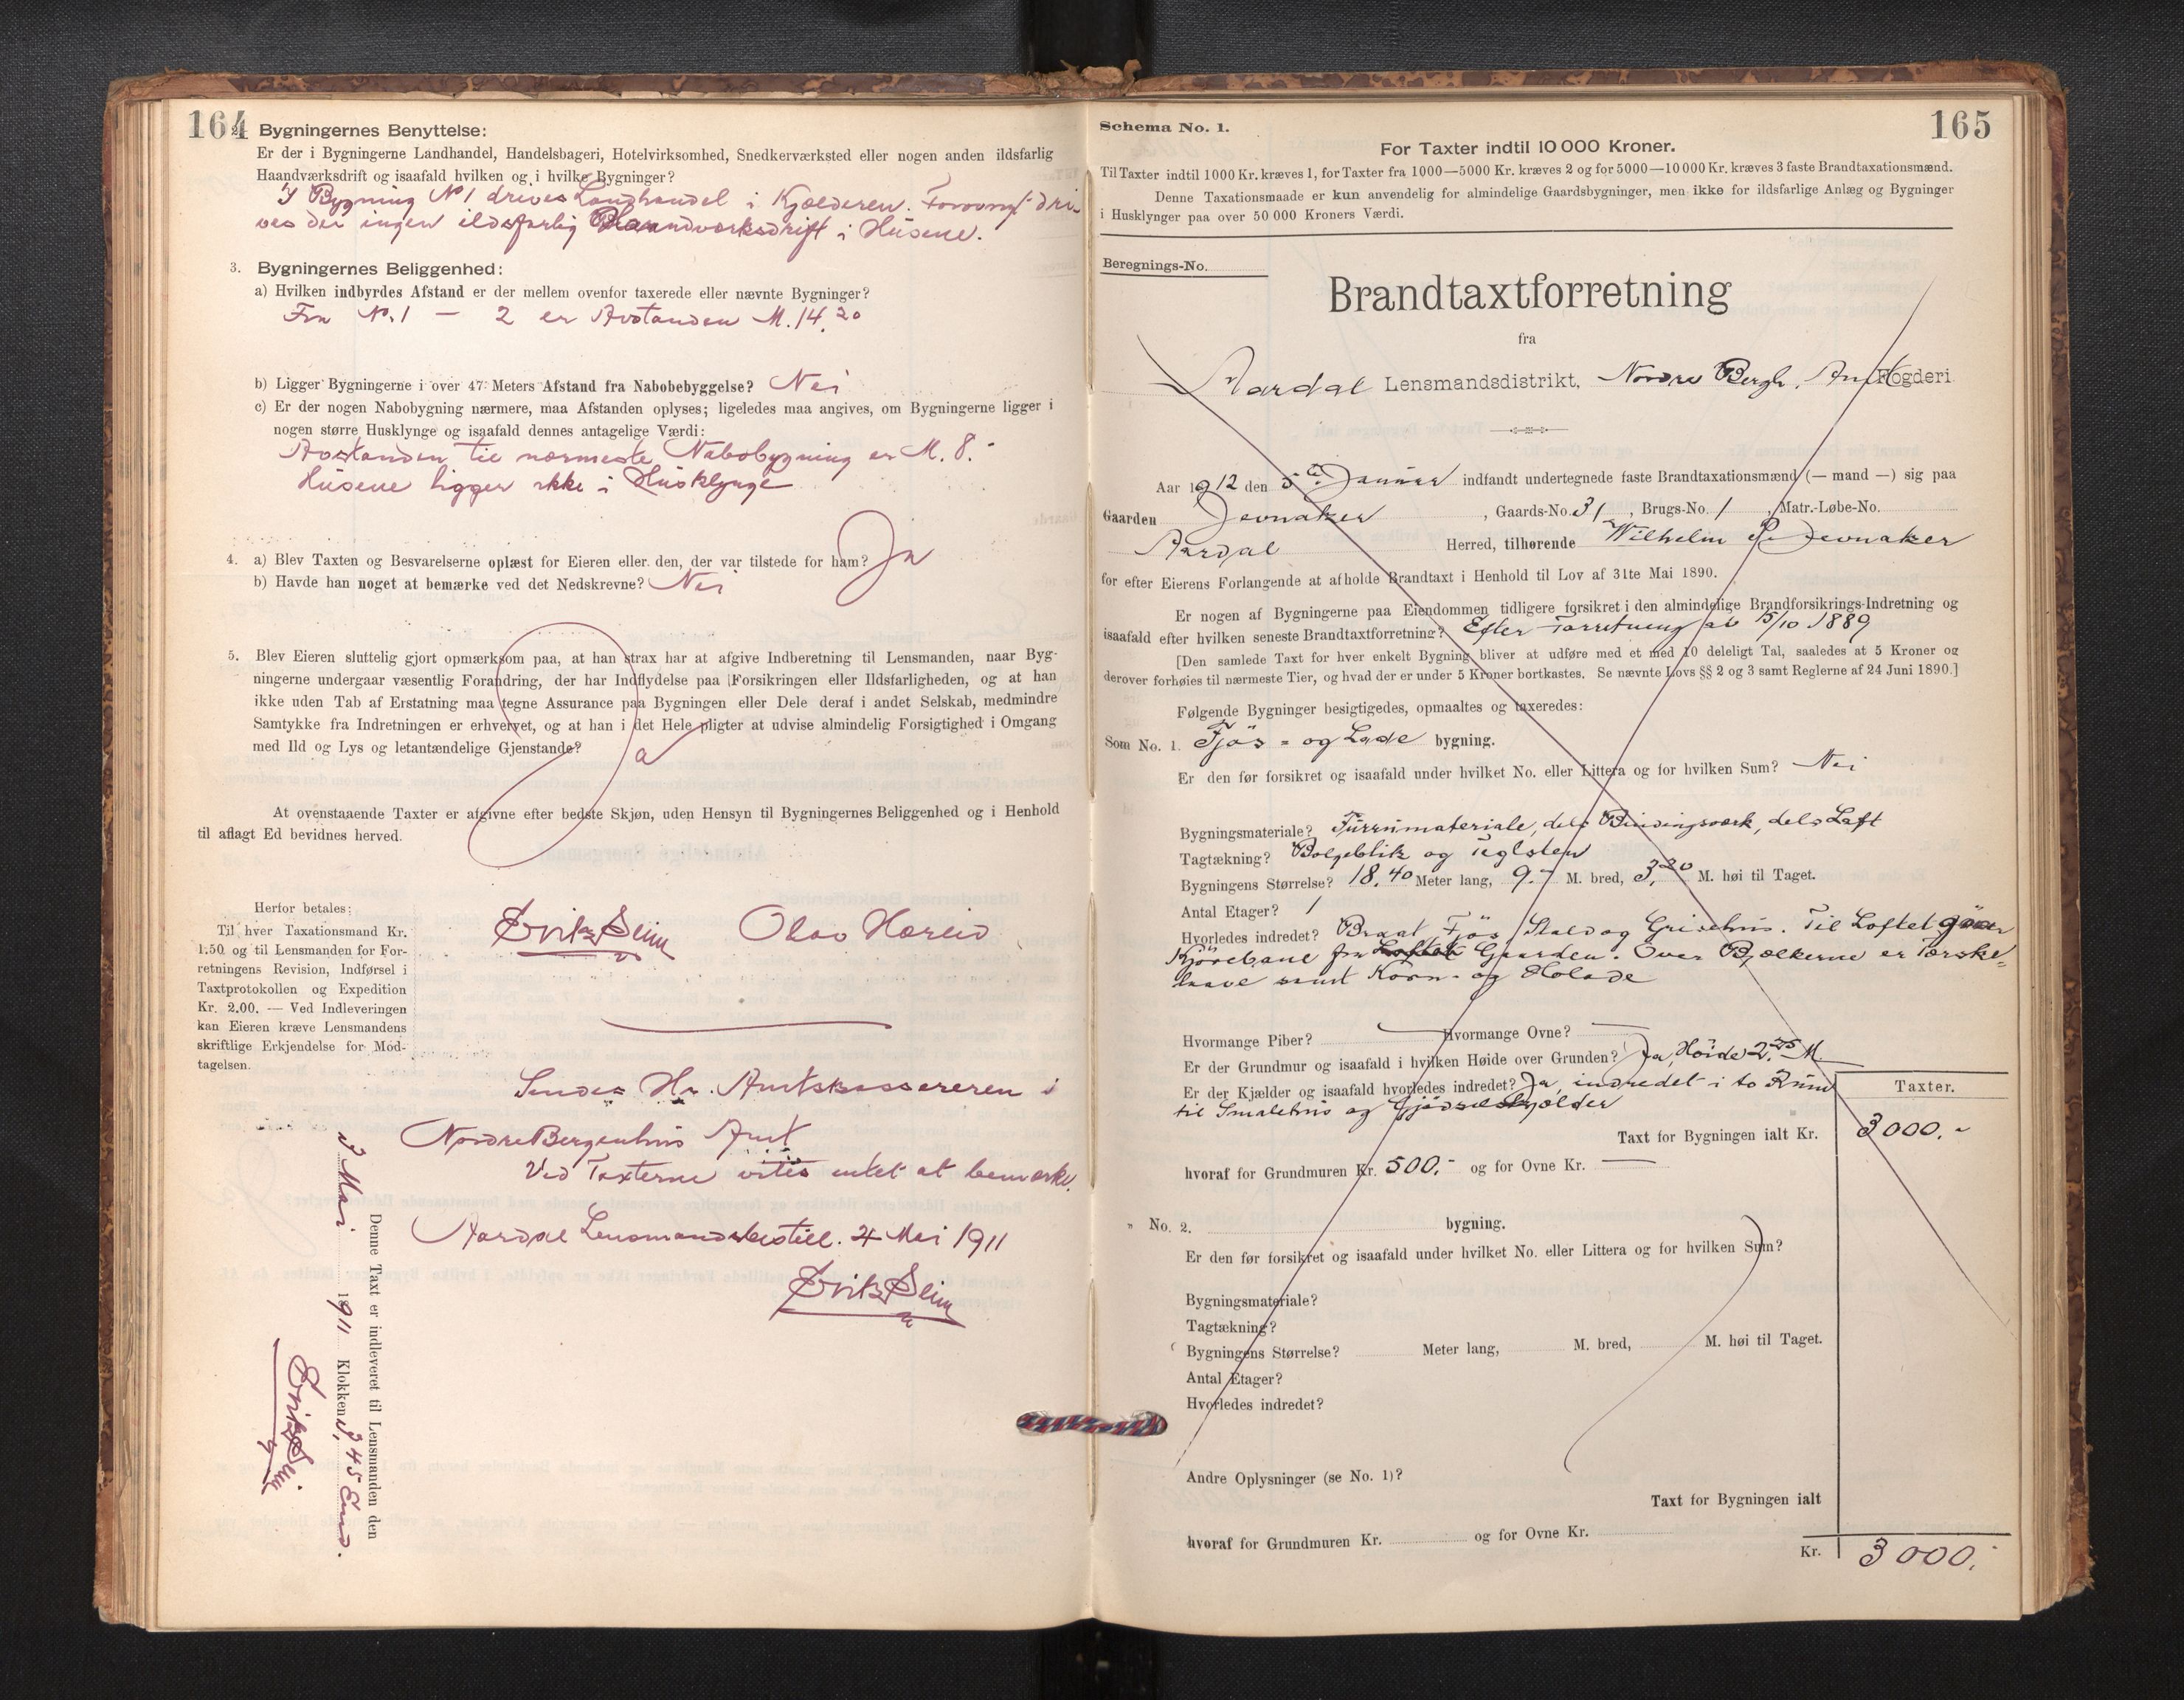 164
Bygningernes Benyttelse:
Er der i Bygningerne Landhandel, Handelsbageri, Hotelvirksomhed, Snedkerværksted eller nogen anden ildsfarlig
Haandværksdrift og isaafald hvilken og i hvilke Bygninger?
I Bygning No 1 drives Landhandel i Kjælderen. Forøvrigt dri-
ves der ingen ildsfarlig Haandværksdrift i Husene.
3. Bygningernes Beliggenhed:
a) Hvilken indbyrdes Afstand er der mellem ovenfor taxerede eller nævnte Bygninger?
Fra No. 1 — 2 er Avstanden M. 14.20
b) Ligger Bygningerne i over 47 Meters Afstand fra Nabobebyggelse? Nei
c) Er der nogen Nabobygning nærmere, maa Afstanden oplyses; ligeledes maa angives, om Bygningerne ligger i
nogen større Husklynge og isaafald dennes antagelige Værdi:
Avstanden til nærmeste Nabobygning er M. 8.-
Husene ligger ikke i Husklynge
4. a) Blev Taxten og Besvarelserne oplæst for Eieren eller den, der var tilstede for ham? Ja
b) Havde han noget at bemærke ved det Nedskrevne? Nei
5. Blev Eieren sluttelig gjort opmærksom paa, at han strax har at afgive Indberetning til Lensmanden, naar Byg-
ningerne undergaar væsentlig Forandring, der har Indflydelse paa Forsikringen eller Ildsfarligheden, og at han
ikke uden Tab af Erstatning maa tegne Assurance paa Bygningen eller Dele deraf i andet Selskab, medmindre
Samtykke fra Indretningen er erhvervet, og at han i det Hele pligter at udvise almindelig Forsigtighed i Omgang
med Ild og Lys og letantændelige Gjenstande?
Ja
At ovenstaaende Taxter er afgivne efter bedste Skjøn, uden Hensyn til Bygningernes Beliggenhed og i Henhold
til aflagt Ed bevidnes herved.
Herfor betales:
Til hver Taxationsmand Kr.
1.50 og til Lensmanden for For-
retningens Revision, Indførsel i
Taxtprotokollen og Expedition
Kr. 2.00. — Ved Indleveringen
kan Eieren kræve Lensmandens
skriftlige Erkjendelse for Mod-
tagelsen.
Erik Seim Olav Hæreid
Sendes Hr. Amtskassereren i
Nordre Bergenhus Amt
Ved Taxterne vites intet at bemærke.
Aardal Lensmandsbestill. 4 Mai 1911
Erik Seim
Denne Taxt er indleveret til Lensmanden den
3 Mai 1911 Klokken 3 45 Emd.
Erik Seim
165
Schema No. 1.
For Taxter indtil 10 000 Kroner.
Til Taxter indtil 1000 Kr. kræves 1, for Taxter fra 1000—5000 Kr. kræves 2 og for 5000—10000 Kr. kræves 3 faste Brandtaxationsmænd.
Denne Taxationsmaade er kun anvendelig for almindelige Gaardsbygninger, men ikke for ildsfarlige Anlæg og Bygninger
i Husklynger paa over 50 000 Kroners Værdi.
Beregnings-No.
Brandtaxtforretning
fra
Aardal Lensmandsdistrikt, Nordre Bergh. Amt Fogderi
Aar 1912 den 5te Januar indfandt undertegnede faste Brandtaxationsmænd (— mand —) sig paa
Gaarden Jevnaker, Gaards-No. 31, Brugs-No. 1, Matr.-Løbe-No.
Aardal Herred, tilhørende Wilhelm P. Jevnaker
for efter Eierens Forlangende at afholde Brandtaxt i Henhold til Lov af 31te Mai 1890.
Er nogen af Bygningerne paa Eiendommen tidligere forsikret i den almindelige Brandforsikrings-Indretning og
isaafald efter hvilken seneste Brandtaxtforretning? Efter Forretning av 15/10 1889
[Den samlede Taxt for hver enkelt Bygning bliver at udføre med et med 10 deleligt Tal, saaledes at 5 Kroner og
derover forhøies til nærmeste Tier, og hvad der er under 5 Kroner bortkastes. Se nævnte Lovs §§ 2 og 3 samt Reglerne af 24 Juni 1890.]
Følgende Bygninger besigtigedes, opmaaltes og taxeredes:
Som No. 1. Fjös- og Lade bygning.
Er den før forsikret og isaafald under hvilket No. eller Littera og for hvilken Sum? Nei
Bygningsmateriale? Furrumateriale, dels Bindingsværk, dels Laft
Tagtækning? Bølgeblik og Teglsten
Bygningens Størrelse? 18.40 Meter lang, 9.- M. bred, 3.20 M. høi til Taget.
Antal Etager? 1
Hvorledes indredet? Braat, Fjös, Stald og Grisehus. Til Loftet gaar
Kjörebane fra Gaarden. Over Bjælkerne er Tærske-
laave samt Korn- og Hölade
Hvormange Piber? — Hvormange Ovne? —
Er der Grundmur og isaafald i hvilken Høide over Grunden? Ja, Høide 2.25 M.
Er der Kjælder og isaafald hvorledes indredet? Ja, indredet i to Rum
til Smalehus og Gjödselskjælder
Taxter.
Taxt for Bygningen ialt Kr. 3000.-
hvoraf for Grundmuren Kr. 500.- og for Ovne Kr. —
" No. 2. bygning.
Er den før forsikret og isaafald under hvilket No. eller Littera og for hvilken Sum?
Bygningsmateriale?
Tagtækning?
Bygningens Størrelse? Meter lang, M. bred, M. høi til Taget.
Antal Etager?
Hvorledes indredet?
Andre Oplysninger (se No. 1)?
Taxt for Bygningen ialt
hvoraf for Grundmuren Kr. og for Ovne Kr.
Kr. 3000.-